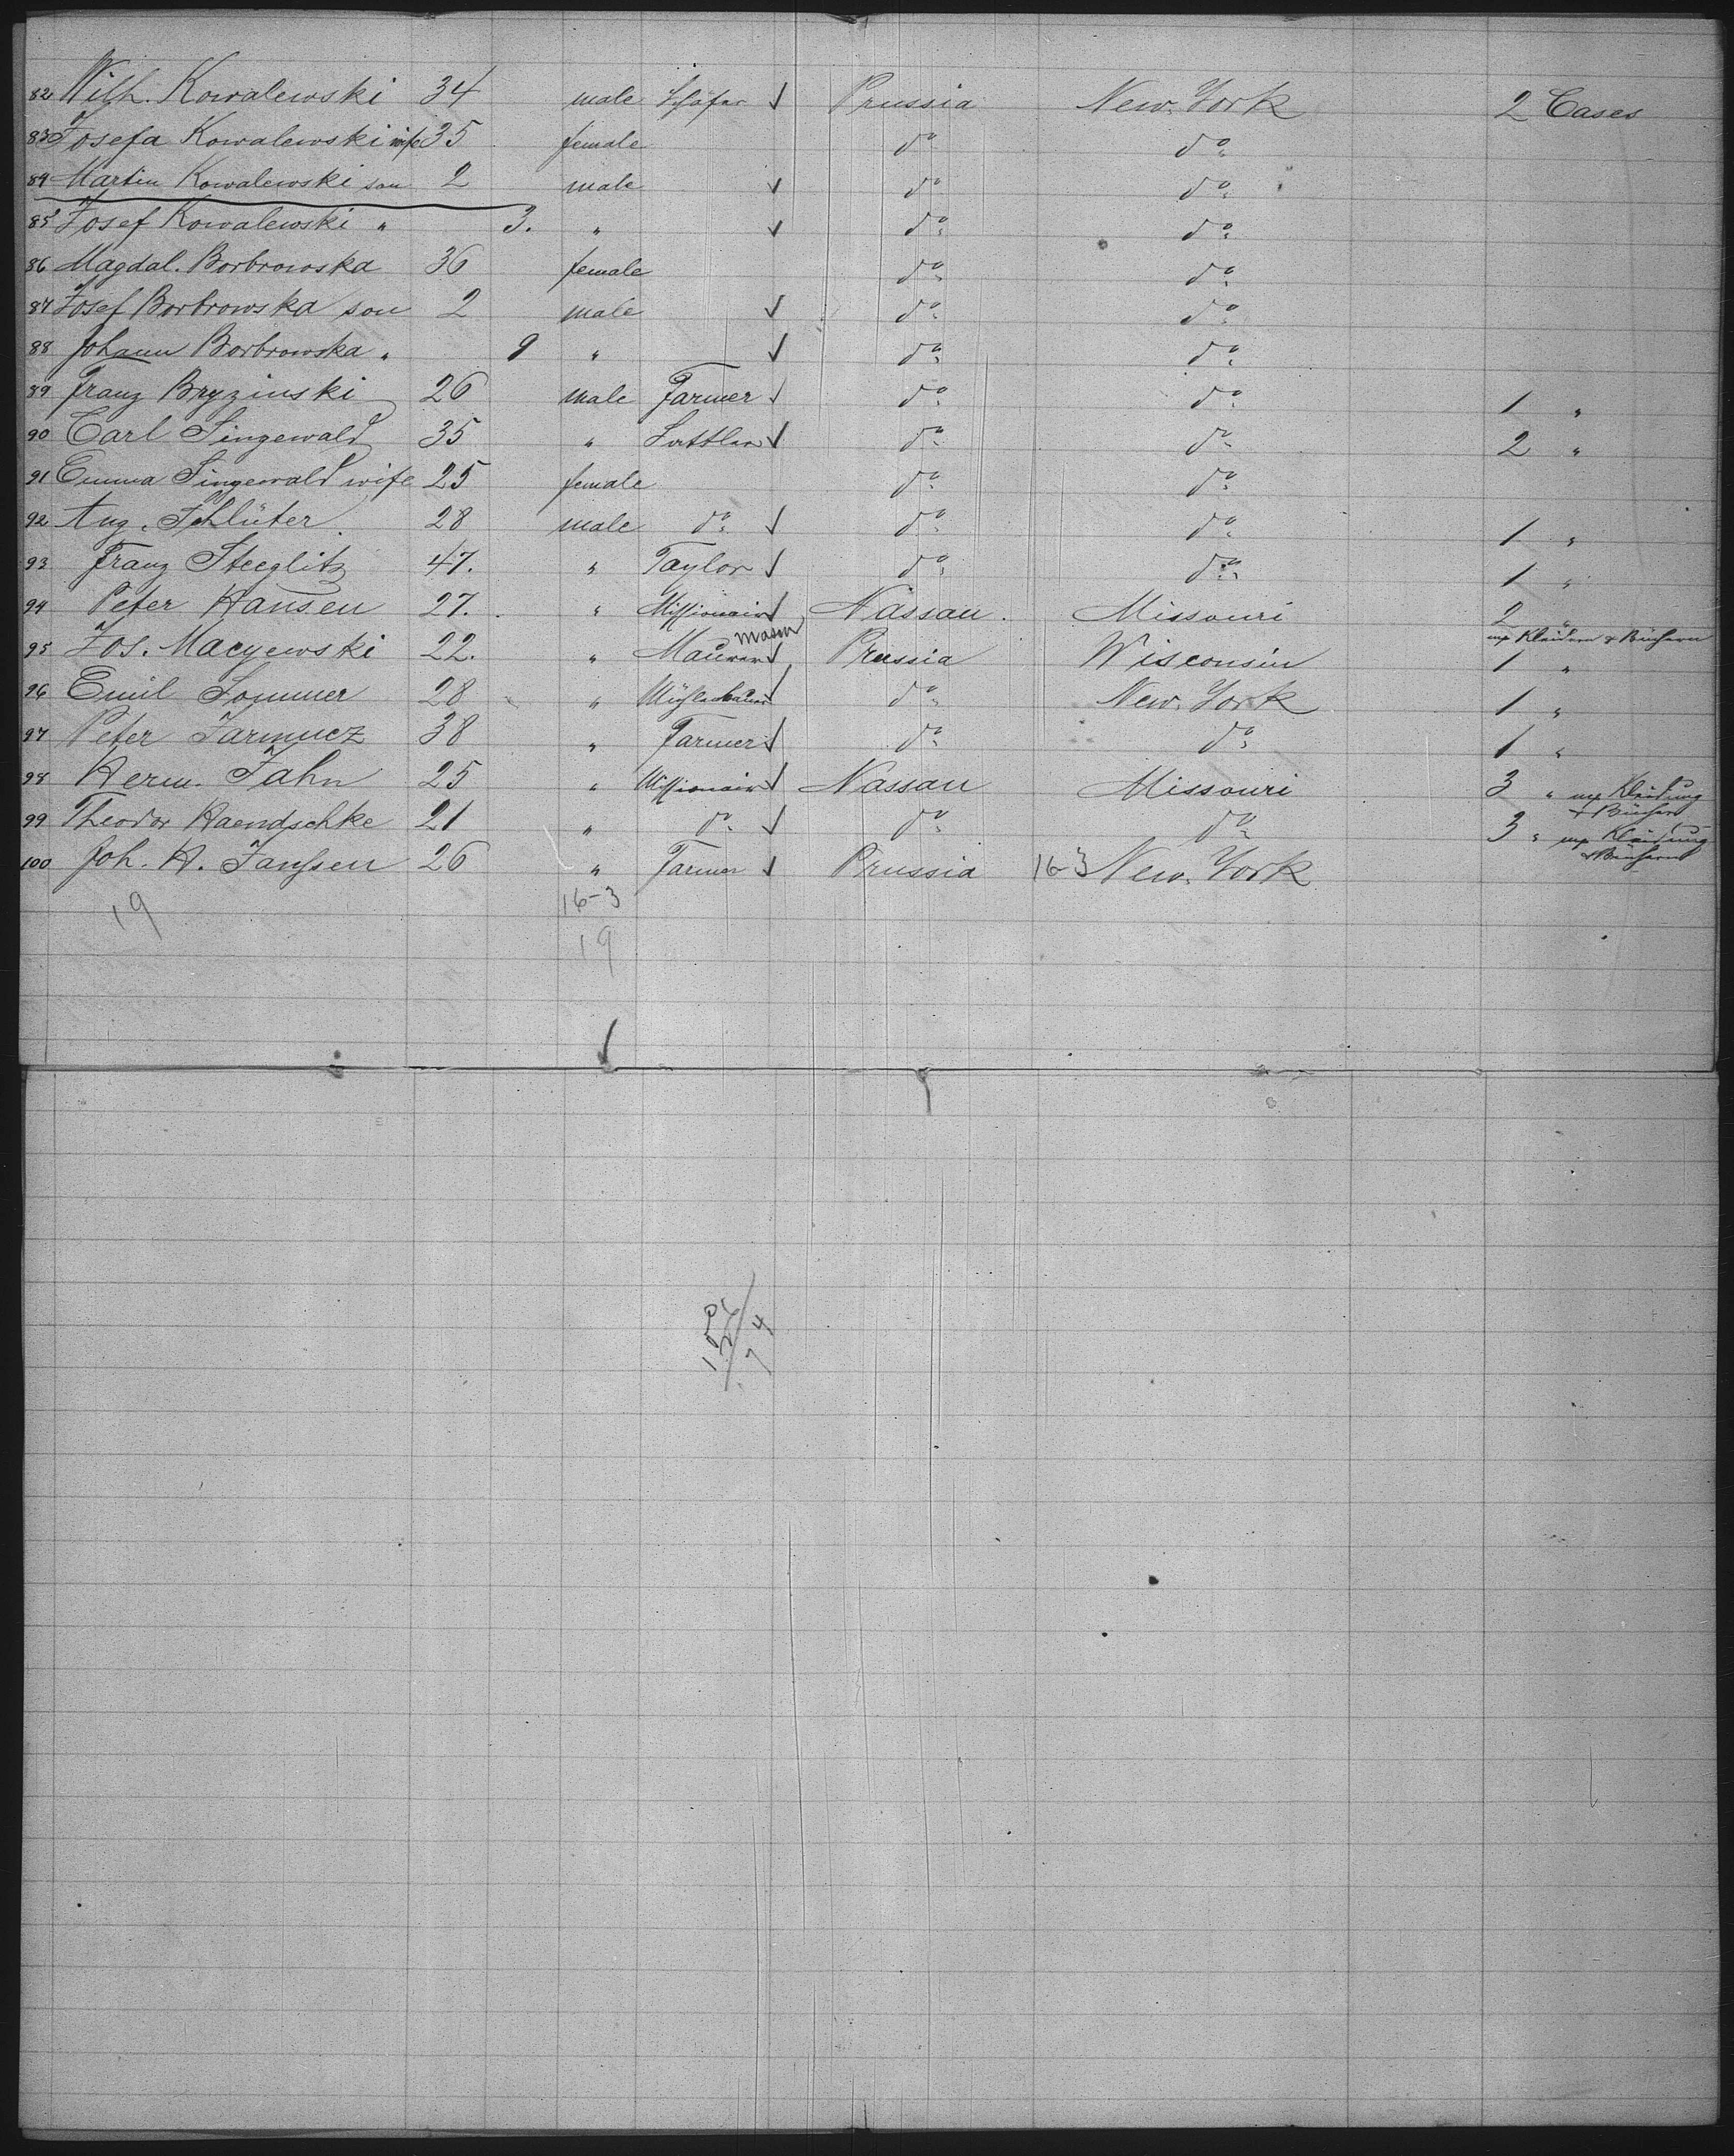 82 Wilh. Kowalewski 34 male Schäfer ✓ Prussia New-York 2 Cases
83 Josefa Kowalewski wife 35 female do do
84 Martin Kowalewski son 2 male ✓ do do
85 Josef Kowalewski " 3. " ✓ do do
86 Magdal. Borbrowska 36 female do do
87 Josef Borbrowska son 2 male ✓ do do
88 Johann Borbrowska " 9 " ✓ do do
89 Franz Bryzinski 26 male Farmer ✓ do do 1 "
90 Carl Singewald 35 " Sattler ✓ do do 2 "
91 Emma Singewald wife 25 female do do
92 Aug. Schlüter 28 male do ✓ do do 1 "
93 Franz Steeglitz 47. " Taylor ✓ do do 1 "
94 Peter Hansen 27. " Missionair ✓ Nassau. Missouri 2 "
mason mit Kleidern & Büchern
95 Jos. Macyewski 22. " Maurer ✓ Prussia Wisconsin 1 "
96 Emil Sommer 28 " ✓ do New-York 1 "
97 Peter Jarmucz 38 " Farmer ✓ do do 1 "
98 Herm. Jahn 25 " Missionair ✓ Nassau Missouri 3 " mit Kleidung
& Büchern
99 Theodor Haendschke 21 " do ✓ do do 3 " mit Kleidung
& Büchern
100 Joh. H. Janssen 26 " Farmer ✓ Prussia 16-3 New-York
19 16-3
19